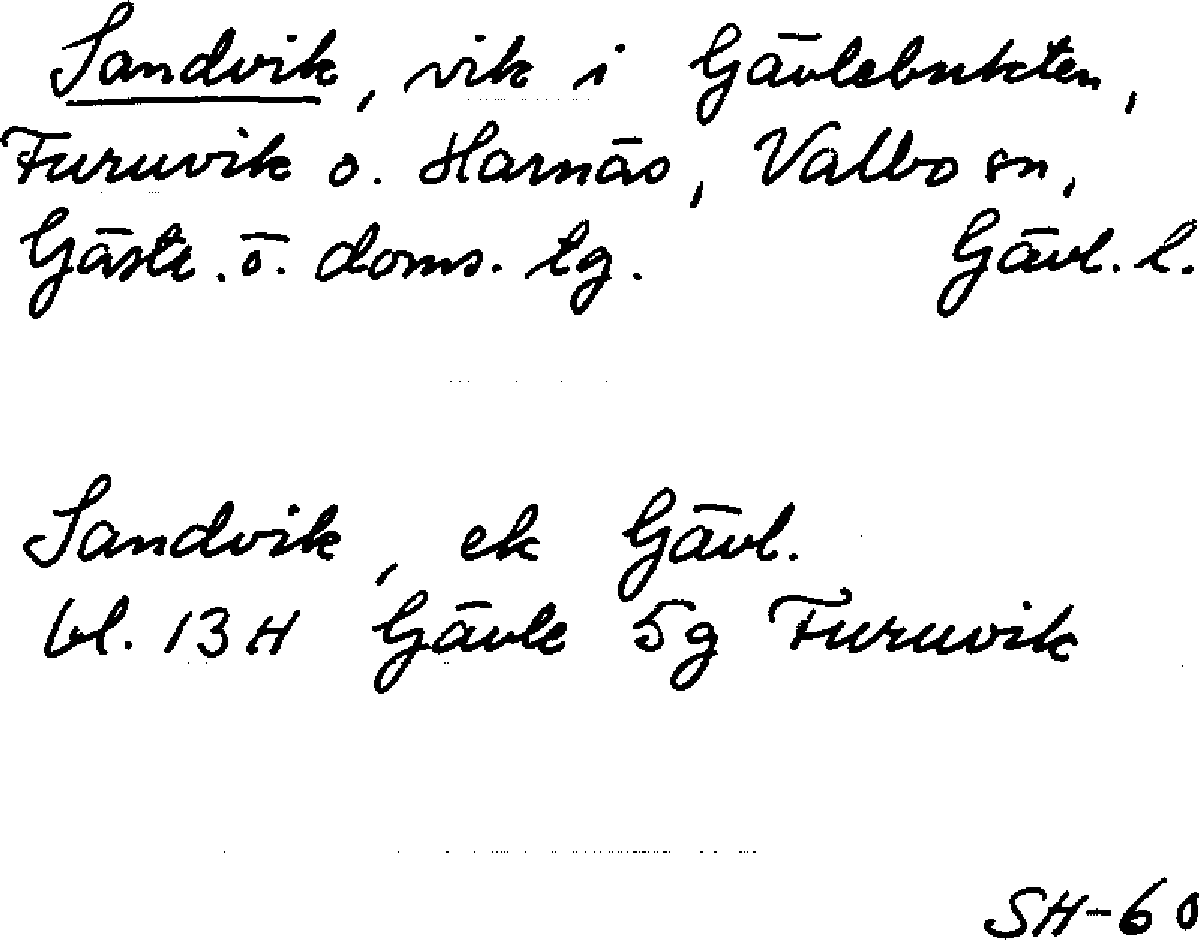 Sandvik, vik i Gävlebukten,
Furuvik o. Harnäs, Valbo sn,
Gästr. ö. doms. tg. Gävl. l.
Sandvik, ek Gävl.
bl. 13H Gävle 5g Furuvik
SH-60